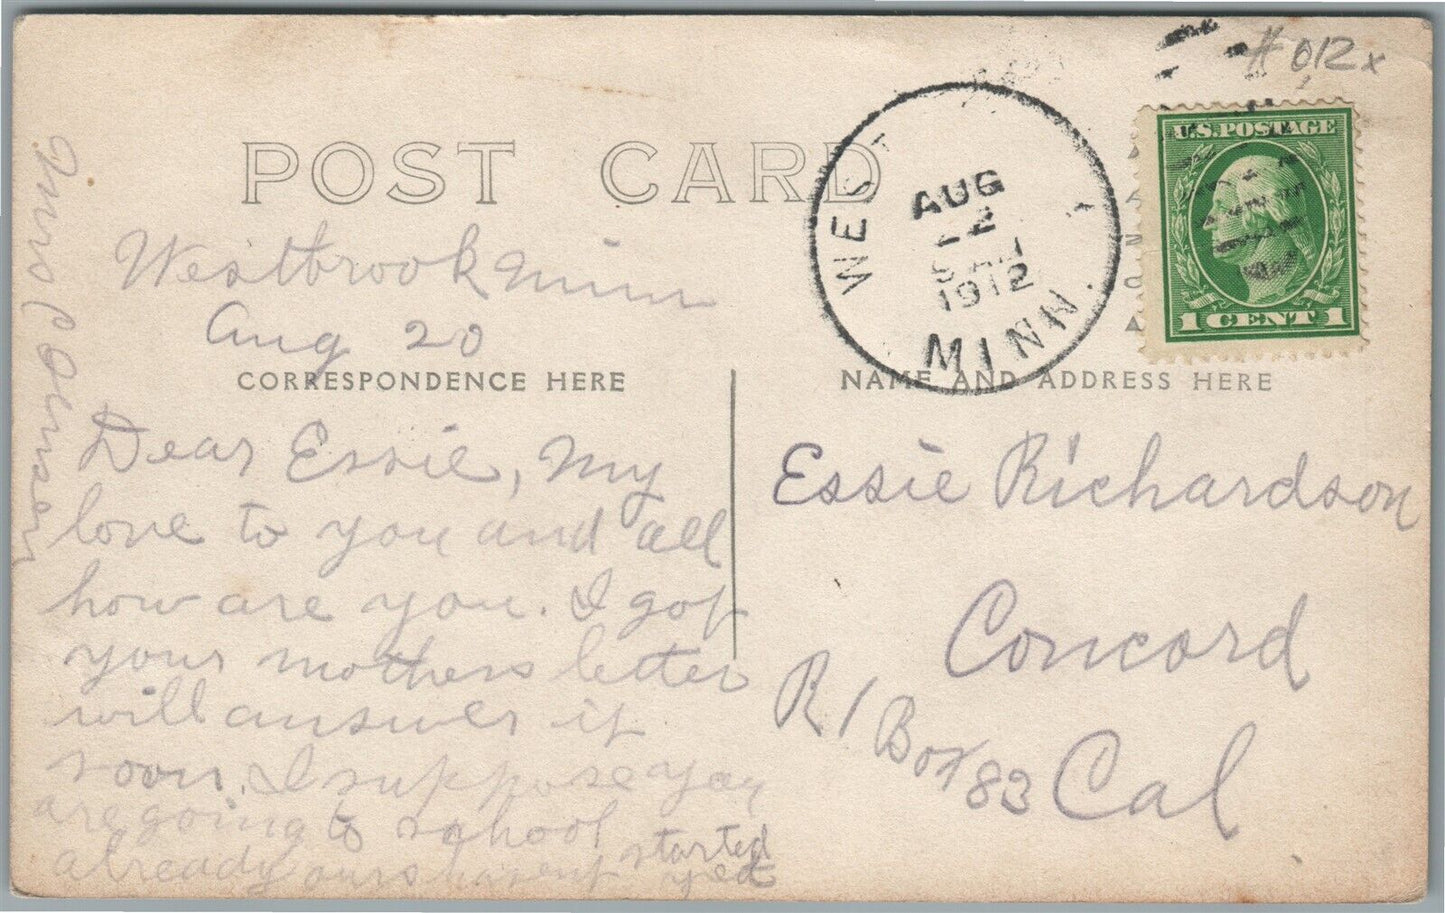 # 012x
U.S. POSTAGE
1 CENT 1
POST CARD
WEST
AUG
22
1912
MINN.
Westbrook Minn
Aug 20
CORRESPONDENCE HERE
NAME AND ADDRESS HERE
Dear Essie, My
love to you and all
how are you. I got
your mothers letter
will answer it
soon. I suppose you
are going to school
already ours havent started
yet
Mrs C
Essie Richardson
Concord
R1 Box 83 Cal